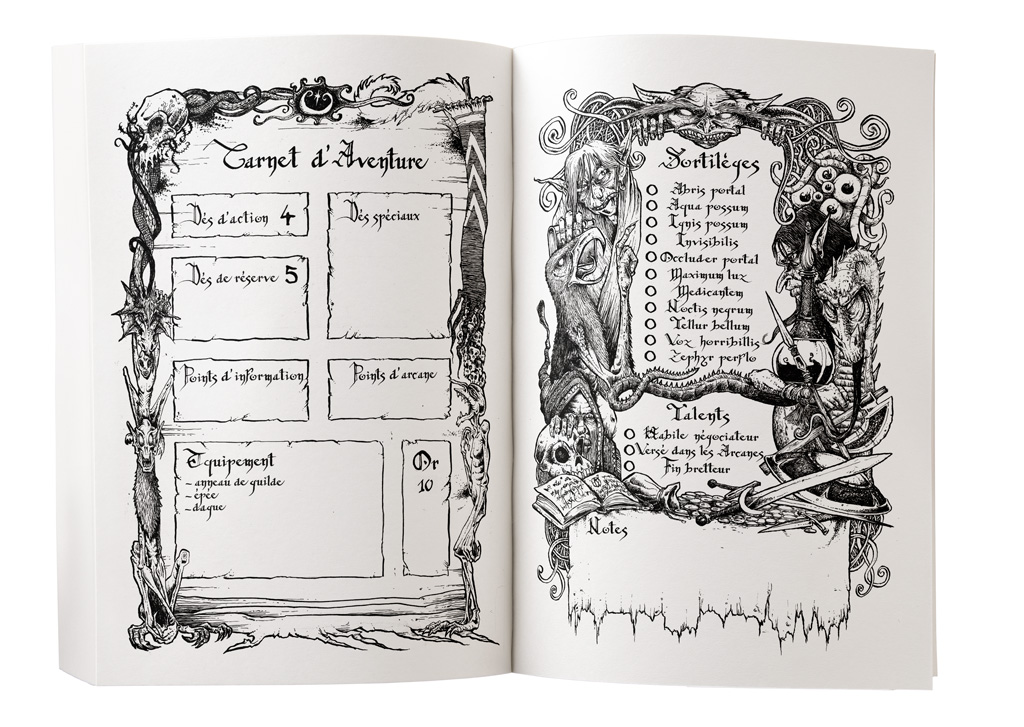 Carnet d'Aventure
Dés d'action 4
Dés spéciaux
Dés de réserve 5
Points d'information
Points d'arcane
Équipement
- anneau de guilde
- épée
- dague
Or
10
Sortilèges
Abris portal
Aqua possum
Ignis possum
Invisibilis
Occluder portal
Maximum lux
Medicantem
Noctis negrum
Tellur bellum
Vox horribilis
Zephyr perflo
Talents
Habile négociateur
Versé dans les Arcanes
Fin bretteur
Notes